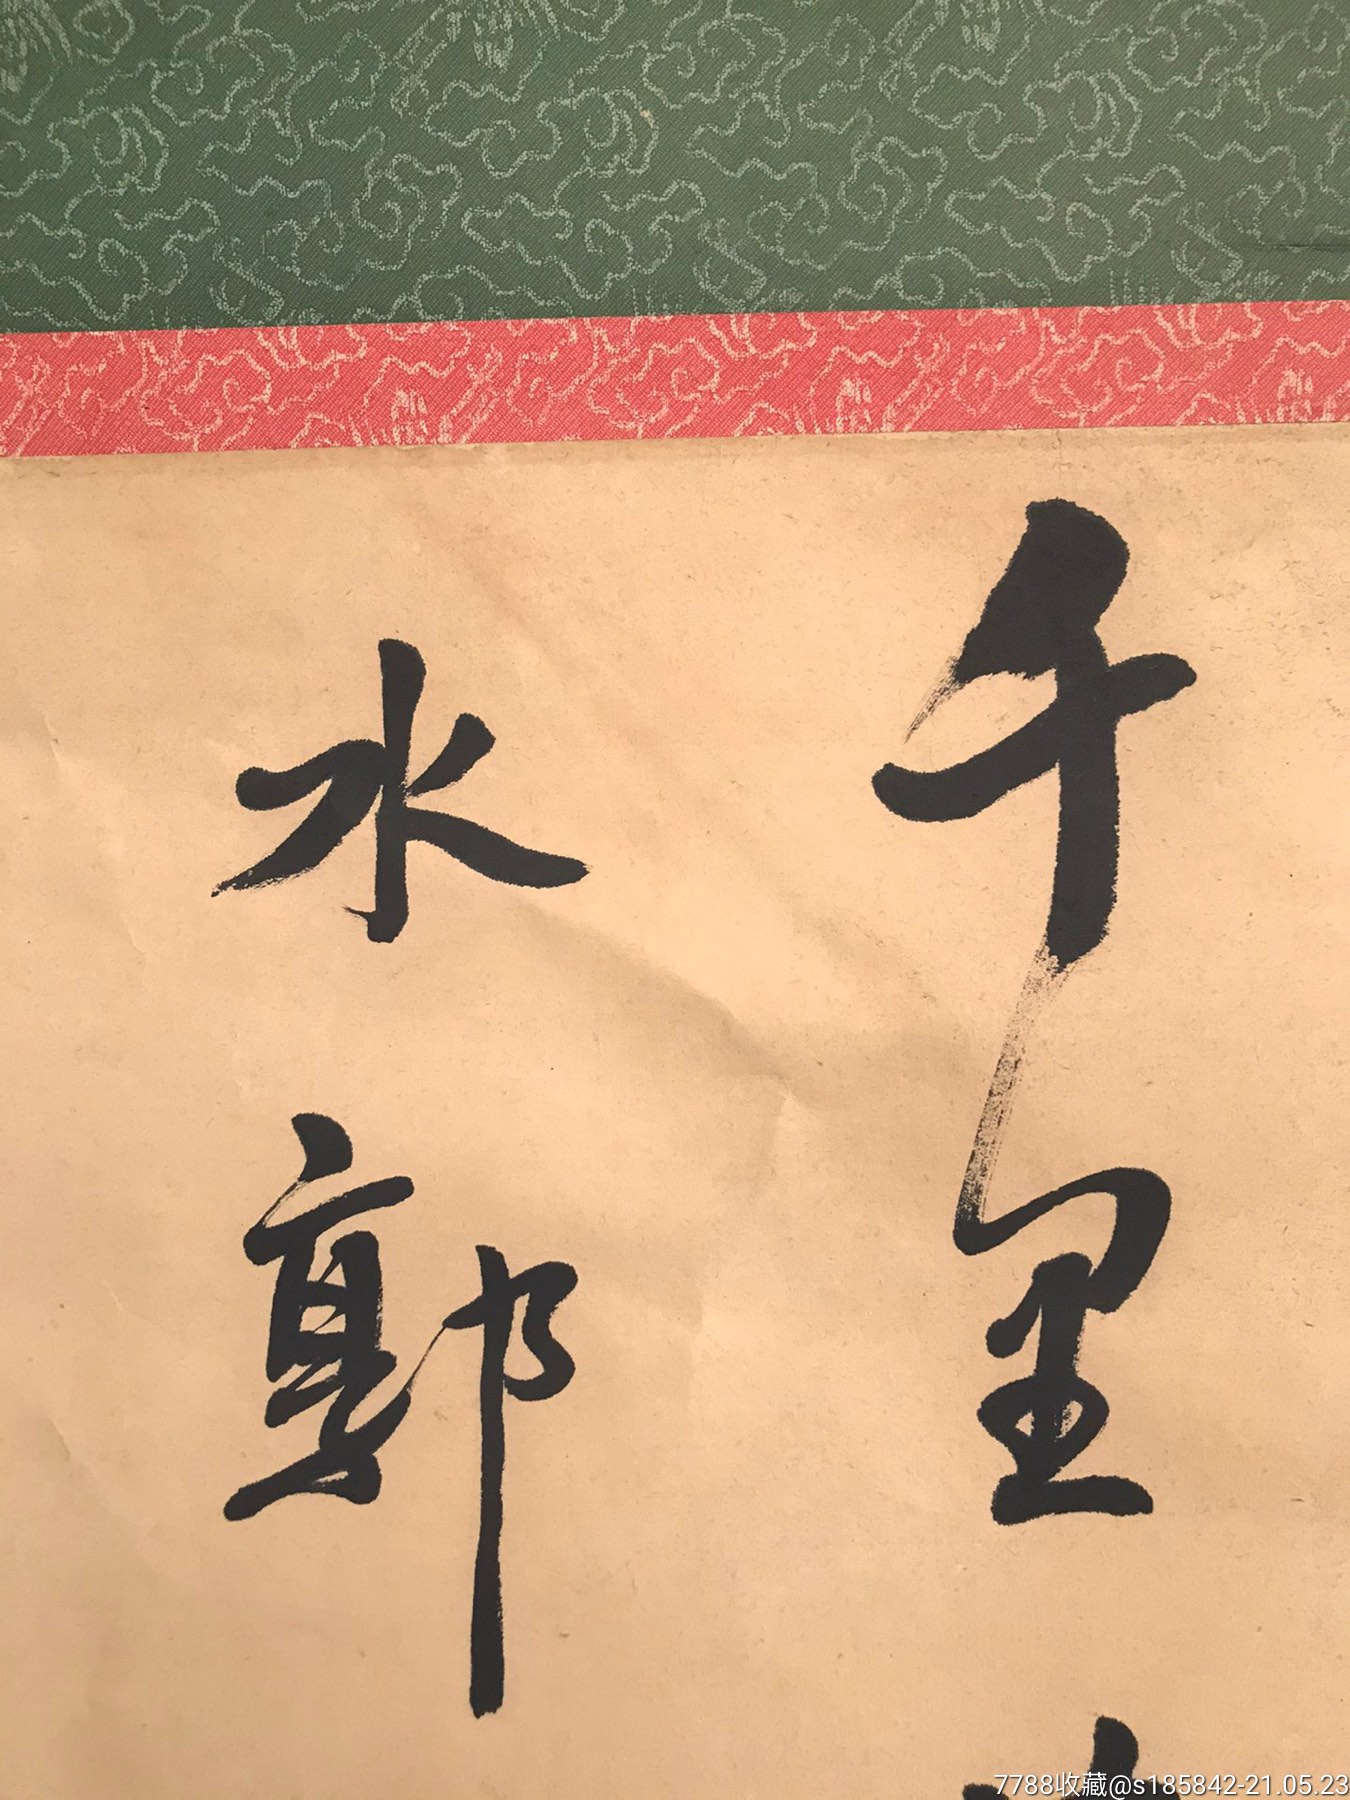 千里
水郭
7788收藏@s185842-21.05.23